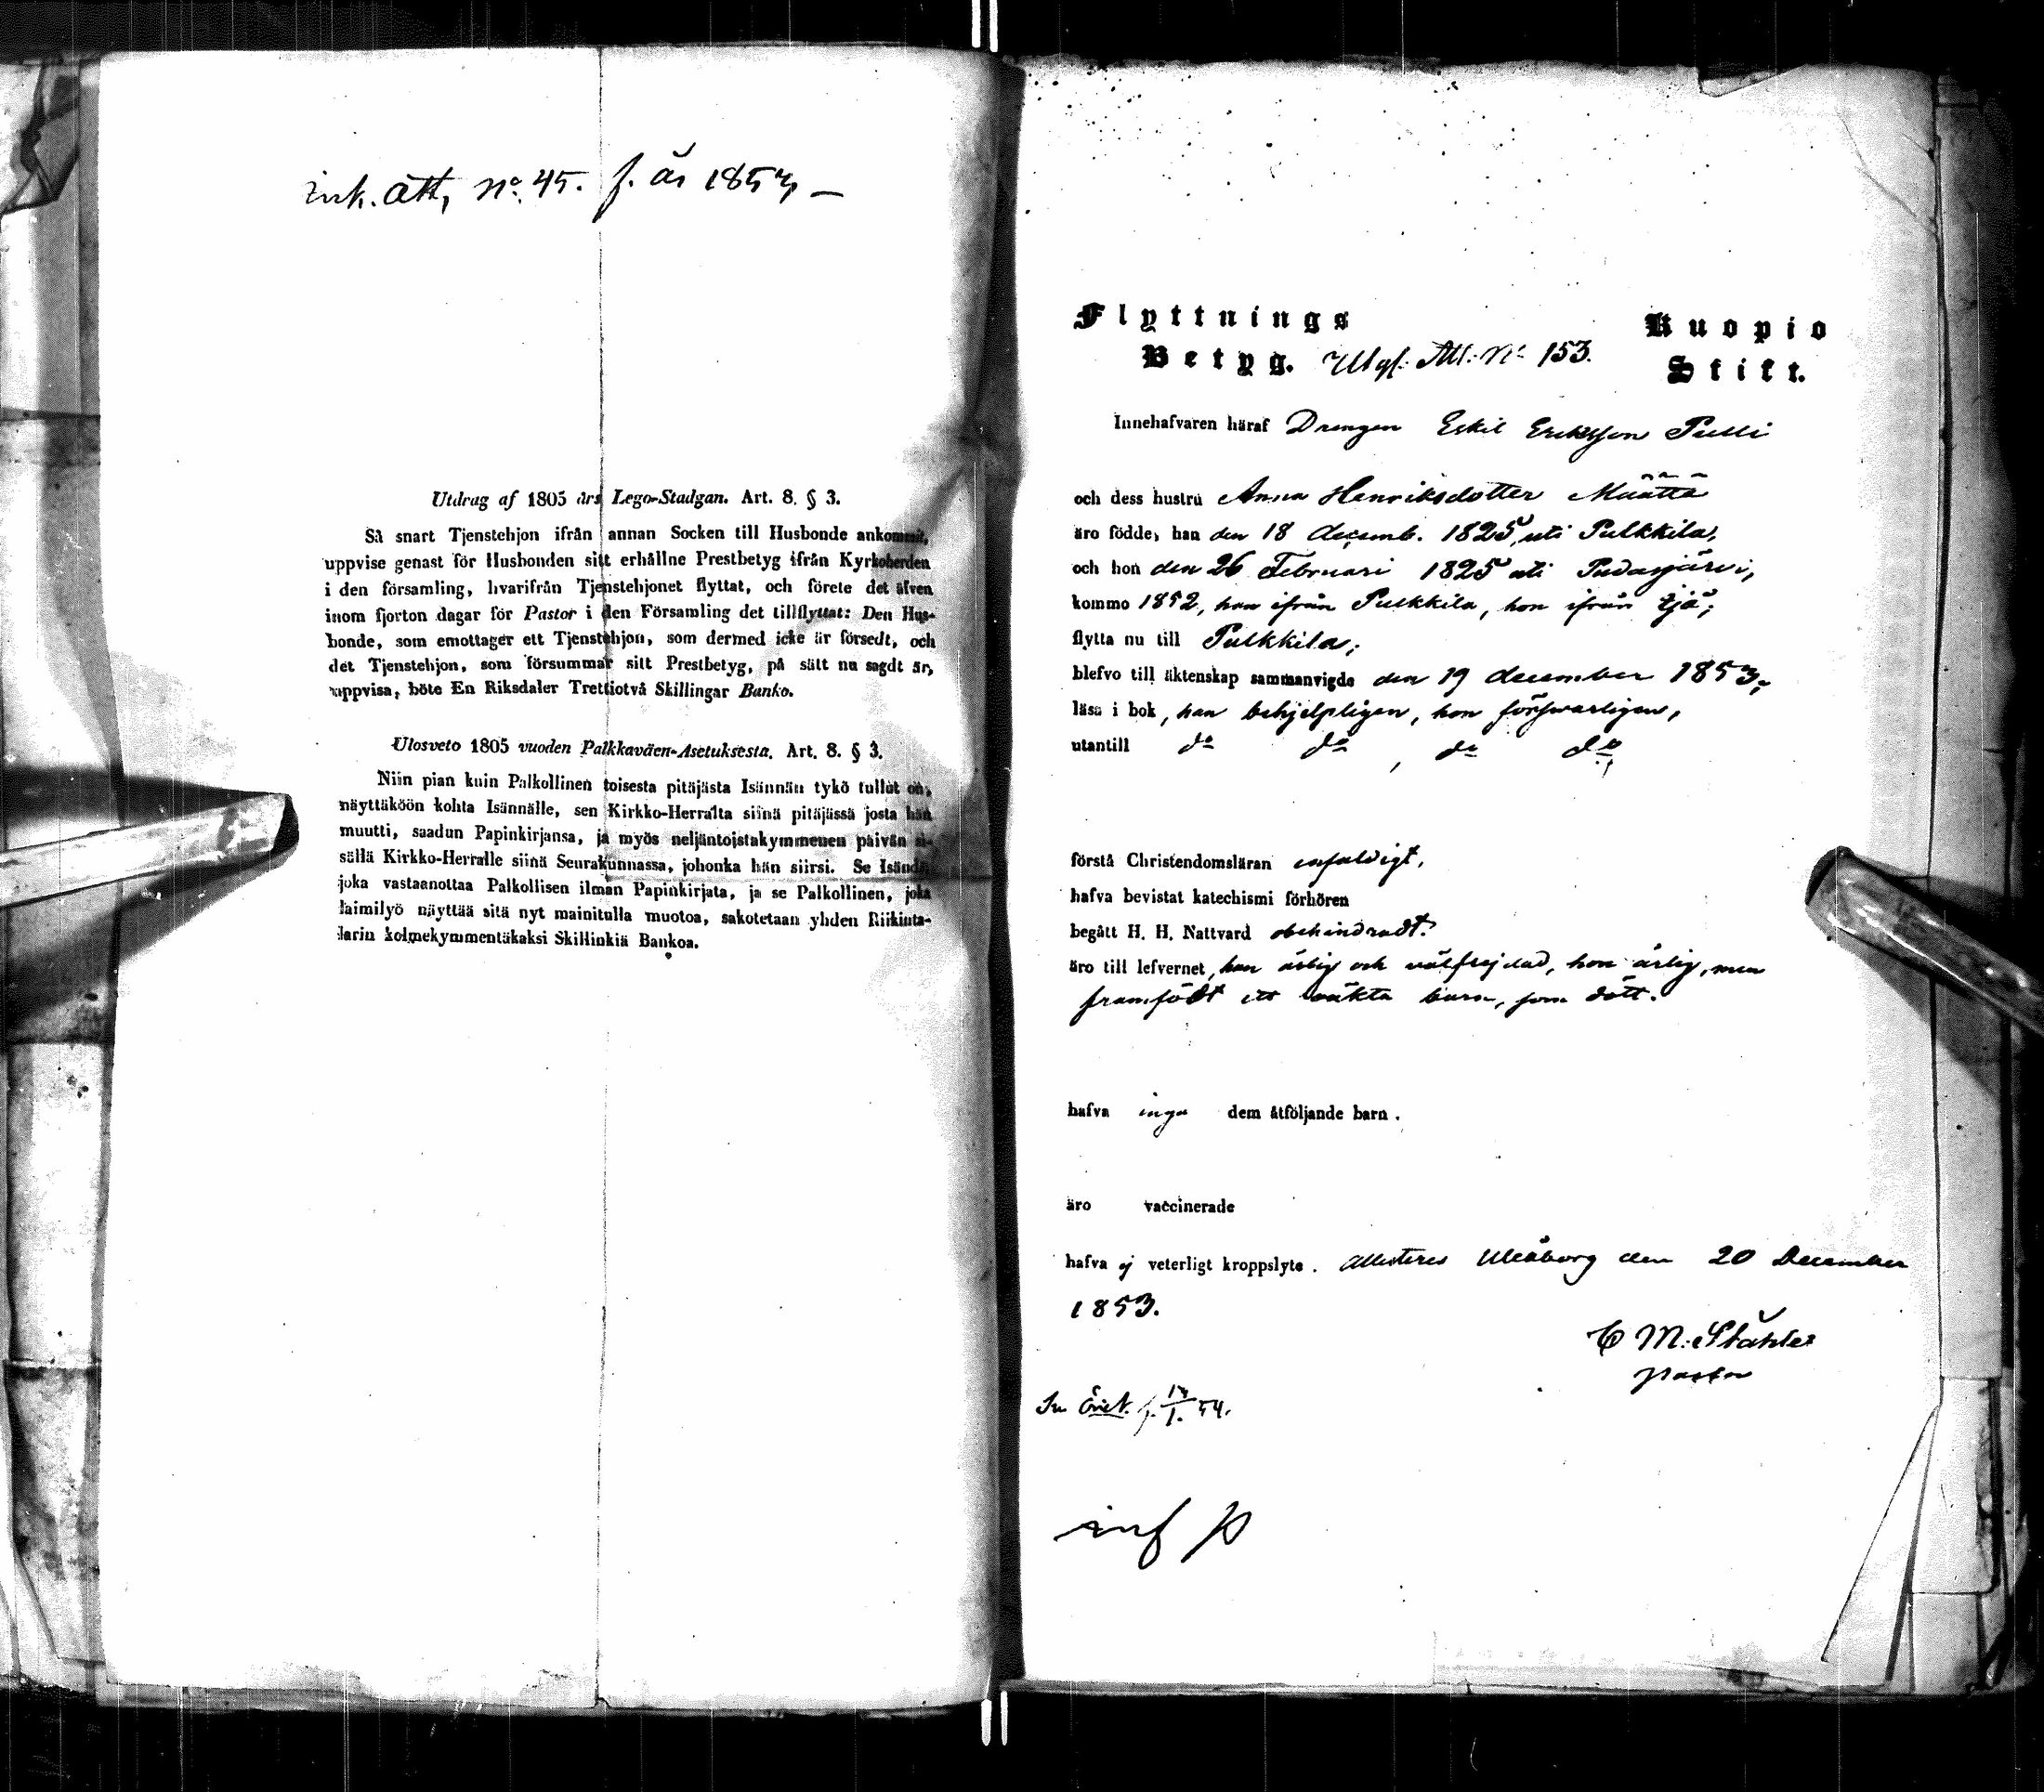 ink. att, No: 45. f. år 1853 —
Utdrag af 1805 års Lego-Stadgan. Art. 8. § 3.
Så snart Tjenstehjon ifrån annan Socken till Husbonde ankommit,
uppvise genast för Husbonden sitt erhållne Prestbetyg ifrån Kyrkoherden
i den församling, hvarifrån Tjenstehjonet flyttat, och förete det äfven
inom fjorton dagar för Pastor i den Församling det tillflyttat: Den Hus-
bonde, som emottager ett Tjenstehjon, som dermed icke är försedt, och
det Tjenstehjon, som försummar sitt Prestbetyg, på sätt nu sagdt är,
uppvisa, böte En Riksdaler Trettiotvå Skillingar Banko.
Ulosveto 1805 vuoden Palkkaväen-Asetuksesta. Art. 8. § 3.
Niin pian kuin Palkollinen toisesta pitäjästa Isännän tykö tullut on,
näyttäköön kohta Isännälle, sen Kirkko-Herralta siinä pitäjässä josta hän
muutti, saadun Papinkirjansa, ja myös neljäntoistakymmenen päivän si-
sällä Kirkko-Herralle siinä Seurakunnassa, johonka hän siirsi. Se Isändä,
joka vastaanottaa Palkollisen ilman Papinkirjata, ja se Palkollinen, joka
laimilyö näyttää sitä nyt mainitulla muotoa, sakotetaan yhden Riikinta-
larin kolmekymmentäkaksi Skillinkiä Bankoa.
Flyttnings Kuopio
Betyg. Utgf. Att: No 153. Stift.
Innehafvaren häraf Drengen Eskil Eriksson Pulli
och dess hustru Anna Henriksdotter Määttä
äro födde, han den 18 decemb. 1825 uti Pulkkila,
och hon den 26 Februari 1825 uti Pudasjärvi,
kommo 1852, han ifrån Pulkkila, hon ifrån Ijå;
flytta nu till Pulkkila;
blefvo till äktenskap sammanvigde den 19 december 1853;
läsa i bok, han behjelpligen, hon försvarligen,
utantill do do, do do,
förstå Christendomsläran enfaldigt,
hafva bevistat katechismi förhören
begått H. H. Nattvard obehindradt.
äro till lefvernet, han ärlig och välfrejdad, hon ärlig, men
framfödt ett oäkta barn, som dött.
hafva inga dem åtföljande barn.
äro vaccinerade
hafva ej veterligt kroppslyte. Attesteres Uleåborg den 20 December
1853.
C M: Ståhle
pastor
54.
inf